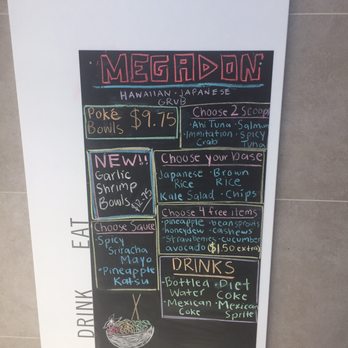 MEGADON
HAWAIIAN · JAPANESE
GRUB
Poké
Bowls $9.75
Choose 2 Scoop
· Ahi Tuna · Salmon
· Immitation · Spicy
Crab Tuna
NEW!!
Garlic
Shrimp
Bowls
Choose your base
Japanese · Brown
Rice Rice
Kale Salad · Chips
Choose 4 free items
· pineapple · beansprouts
honeydew · cashews
Strawberries · cucumber
avocado $1.50 extra
Choose Sauce
Spicy
Sriracha
Mayo
· Pineapple
Katsu
DRINKS
· Bottled · Diet
Water Coke
· Mexican · Mexican
Coke Sprite
DRINK EAT